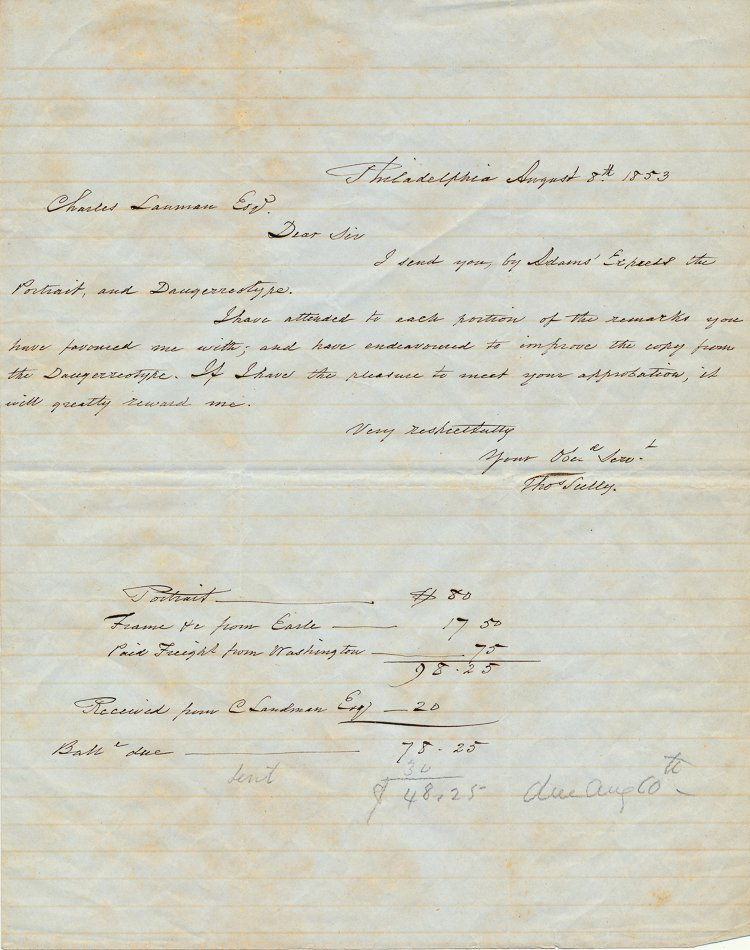 Philadelphia August 8th 1853
Charles Lanman Esqr.
Dear Sir
I send you, by Adams' Express the
Portrait, and Daugerreotype.
I have attended to each portion of the remarks you
have favoured me with; and have endeavoured to improve the copy from
the Daugerreotype. If I have the pleasure to meet your approbation, it
will greatly reward me.
Very respectfully
Your Obed Servt
Thos Sully.
Portrait $ 80
Frame &c from Earle 17 50
Paid Freight from Washington 75
98.25
Received from C Landman Esqr 20
Balle due 78.25
Sent 30
$ 48.25 due Aug 10th